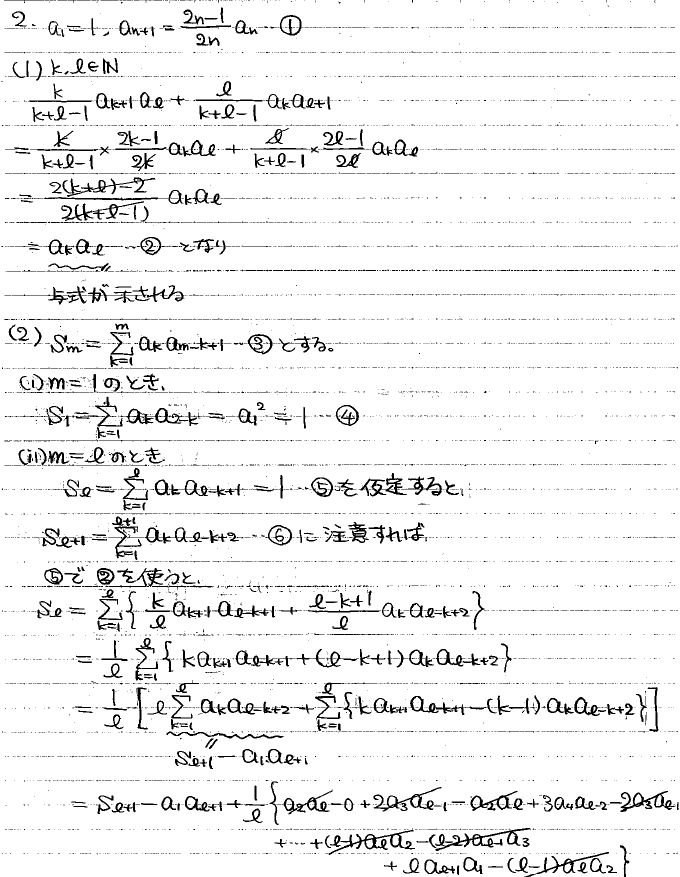 2. a₁=1, aₙ₊₁ = (2n-1)/(2n) aₙ …①
(1) k,ℓ∈ℕ
k/(k+ℓ-1) aₖ₊₁aℓ + ℓ/(k+ℓ-1) aₖaℓ₊₁
= k/(k+ℓ-1) × (2k-1)/(2k) aₖaℓ + ℓ/(k+ℓ-1) × (2ℓ-1)/(2ℓ) aₖaℓ
= (2(k+ℓ)-2)/(2(k+ℓ-1)) aₖaℓ
= aₖaℓ …② となり
与式が示される
(2) Sₘ = Σ_{k=1}^{m} aₖaₘ₋ₖ₊₁ …③とする。
(i) m=1のとき、
S₁ = Σ_{k=1}^{1} aₖa₂₋ₖ = a₁² = 1 …④
(ii) m=ℓのとき
Sℓ = Σ_{k=1}^{ℓ} aₖa_{ℓ-k+1} = 1 …⑤を仮定すると、
S_{ℓ+1} = Σ_{k=1}^{ℓ+1} aₖa_{ℓ-k+2} …⑥に注意すれば、
⑤で②を使うと、
Sℓ = Σ_{k=1}^{ℓ} { k/ℓ aₖ₊₁a_{ℓ-k+1} + (ℓ-k+1)/ℓ aₖa_{ℓ-k+2} }
= 1/ℓ Σ_{k=1}^{ℓ} { kaₖ₊₁a_{ℓ-k+1} + (ℓ-k+1)aₖa_{ℓ-k+2} }
= 1/ℓ [ ℓ Σ_{k=1}^{ℓ} aₖa_{ℓ-k+2} + Σ_{k=1}^{ℓ} { kaₖ₊₁a_{ℓ-k+1} - (k-1)·aₖa_{ℓ-k+2} } ]
S_{ℓ+1} - a₁a_{ℓ+1}
= S_{ℓ+1} - a₁a_{ℓ+1} + 1/ℓ { a₂aℓ - 0 + 2a₃a_{ℓ-1} - a₂aℓ + 3a₄a_{ℓ-2} - 2a₃a_{ℓ-1}
+ … + (ℓ-1)aℓa₂ - (ℓ-2)a_{ℓ-1}a₃
+ ℓa_{ℓ+1}a₁ - (ℓ-1)aℓa₂ }